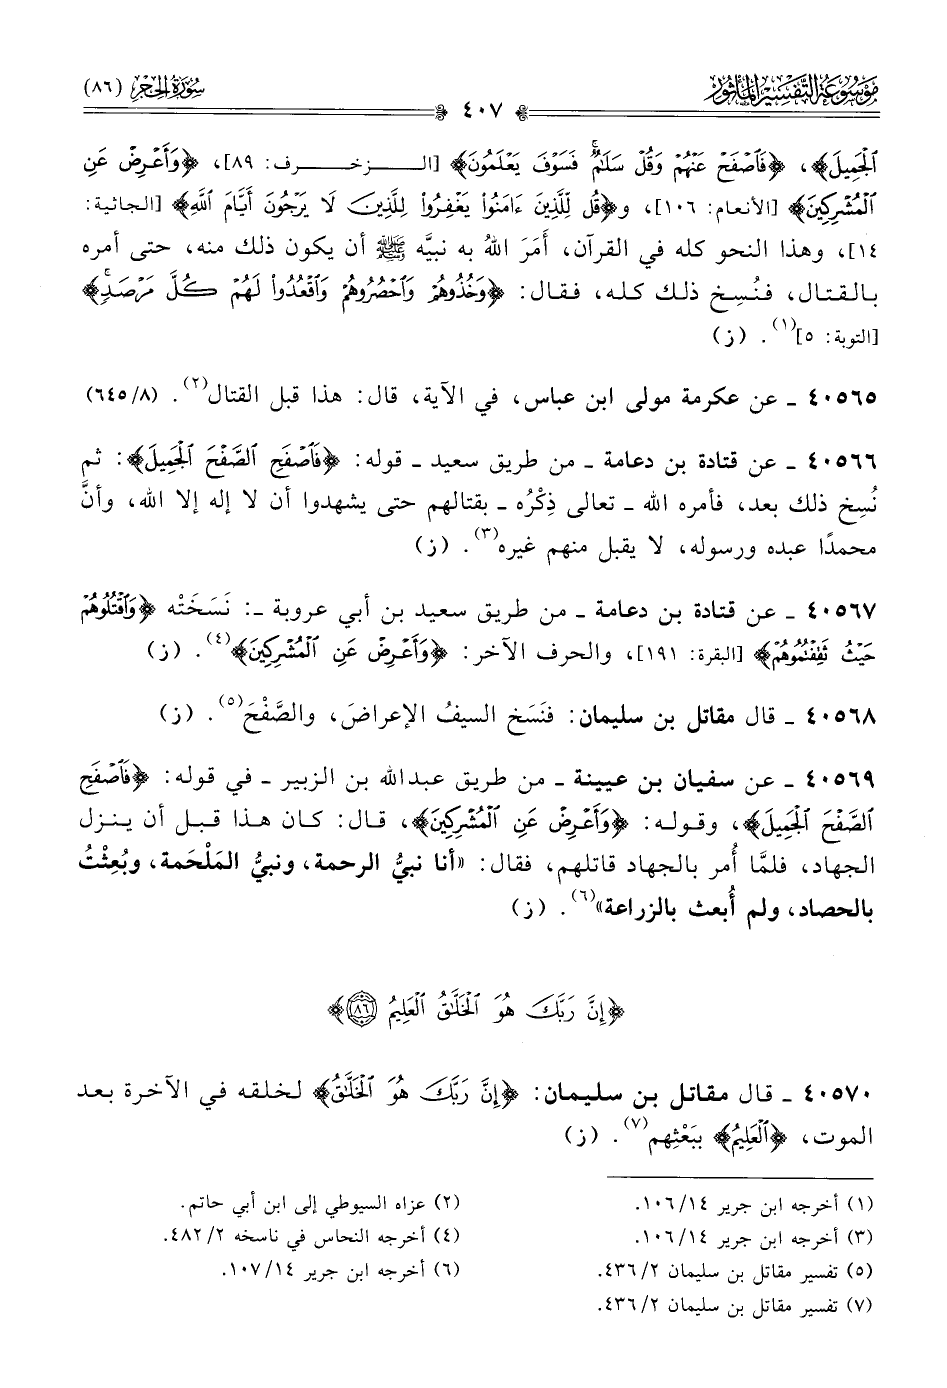 مَوْسُوعَةُ التَّفْسِيرِ المَأْثُورِ
سُورَةُ الحِجْرِ (٨٦)
٤٠٧
ٱلْجَمِيلَ﴾، ﴿فَٱصْفَحْ عَنْهُمْ وَقُلْ سَلَٰمٌۚ فَسَوْفَ يَعْلَمُونَ﴾ [الزخرف: ٨٩]، ﴿وَأَعْرِضْ عَنِ
ٱلْمُشْرِكِينَ﴾ [الأنعام: ١٠٦]، و﴿قُل لِّلَّذِينَ ءَامَنُوا۟ يَغْفِرُوا۟ لِلَّذِينَ لَا يَرْجُونَ أَيَّامَ ٱللَّهِ﴾ [الجاثية:
١٤]، وهذا النحو كله في القرآن، أَمَرَ اللهُ به نبيَّه ﷺ أن يكون ذلك منه، حتى أمره
بالقتال، فنُسِخ ذلك كله، فقال: ﴿وَخُذُوهُمْ وَٱحْصُرُوهُمْ وَٱقْعُدُوا۟ لَهُمْ كُلَّ مَرْصَدٍۚ﴾
[التوبة: ٥](١). (ز)
٤٠٥٦٥ ـ عن عكرمة مولى ابن عباس، في الآية، قال: هذا قبل القتال(٢). (٦٤٥/٨)
٤٠٥٦٦ ـ عن قتادة بن دعامة ـ من طريق سعيد ـ قوله: ﴿فَٱصْفَحِ ٱلصَّفْحَ ٱلْجَمِيلَ﴾: ثم
نُسِخ ذلك بعد، فأمره الله ـ تعالى ذِكْرُه ـ بقتالهم حتى يشهدوا أن لا إله إلا الله، وأنَّ
محمدًا عبده ورسوله، لا يقبل منهم غيره(٣). (ز)
٤٠٥٦٧ ـ عن قتادة بن دعامة ـ من طريق سعيد بن أبي عروبة ـ: نَسَخَتْه ﴿وَٱقْتُلُوهُمْ
حَيْثُ ثَقِفْتُمُوهُمْ﴾ [البقرة: ١٩١]، والحرف الآخر: ﴿وَأَعْرِضْ عَنِ ٱلْمُشْرِكِينَ﴾(٤). (ز)
٤٠٥٦٨ ـ قال مقاتل بن سليمان: فنَسَخ السيفُ الإعراضَ، والصَّفْحَ(٥). (ز)
٤٠٥٦٩ ـ عن سفيان بن عيينة ـ من طريق عبدالله بن الزبير ـ في قوله: ﴿فَٱصْفَحِ
ٱلصَّفْحَ ٱلْجَمِيلَ﴾، وقوله: ﴿وَأَعْرِضْ عَنِ ٱلْمُشْرِكِينَ﴾، قال: كان هذا قبل أن ينزل
الجهاد، فلمَّا أُمر بالجهاد قاتلهم، فقال: «أنا نبيُّ الرحمة، ونبيُّ المَلْحَمة، وبُعِثْتُ
بالحصاد، ولم أُبعث بالزراعة»(٦). (ز)
﴿إِنَّ رَبَّكَ هُوَ ٱلْخَلَّٰقُ ٱلْعَلِيمُ ٨٦﴾
٤٠٥٧٠ ـ قال مقاتل بن سليمان: ﴿إِنَّ رَبَّكَ هُوَ ٱلْخَلَّٰقُ﴾ لخلقه في الآخرة بعد
الموت، ﴿ٱلْعَلِيمُ﴾ ببَعْثِهم(٧). (ز)
(١) أخرجه ابن جرير ١٠٦/١٤.
(٢) عزاه السيوطي إلى ابن أبي حاتم.
(٣) أخرجه ابن جرير ١٠٦/١٤.
(٤) أخرجه النحاس في ناسخه ٤٨٢/٢.
(٥) تفسير مقاتل بن سليمان ٤٣٦/٢.
(٦) أخرجه ابن جرير ١٠٧/١٤.
(٧) تفسير مقاتل بن سليمان ٤٣٦/٢.